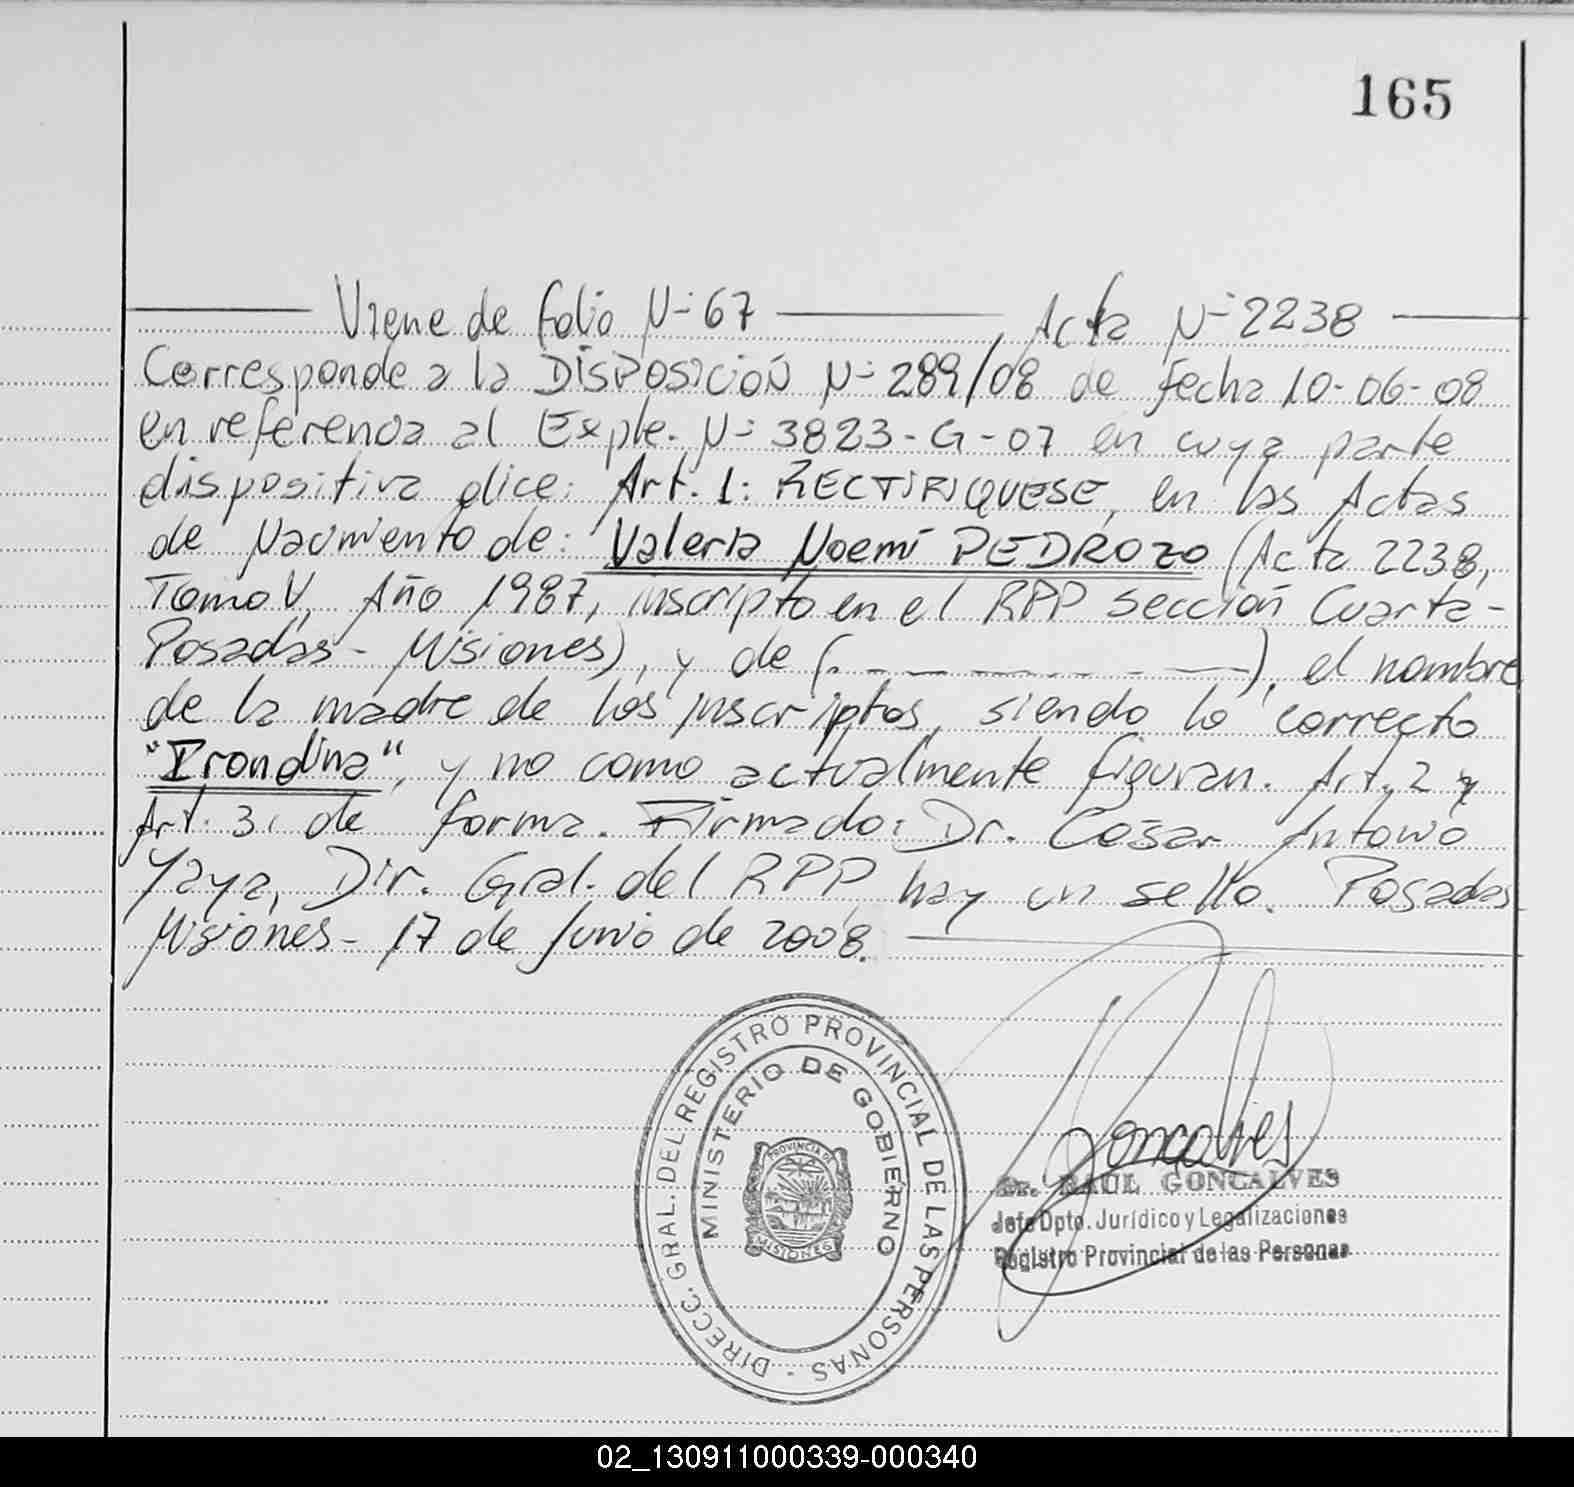 165
Viene de folio Nº 67 Acta Nº 2238
Corresponde a la DISPOSICIÓN Nº 289/08 de fecha 10-06-08
en referencia al Expte. Nº 3823-G-07 en cuya parte
dispositiva dice: Art. 1: RECTIFIQUESE, en las Actas
de Nacimiento de: Valeria Noemí PEDROZO (Acta 2238,
Tomo V, Año 1987, inscripto en el RPP sección Cuarta-
Posadas - Misiones), y de (. — — — — —), el nombre
de la madre de los inscriptos, siendo lo correcto
"Irondina", y no como actualmente figuran. Art. 2 y
Art. 3. de forma. Firmado: Dr. César Antonio
Yaya, Dir. Gral. del RPP, hay un sello. Posadas
Misiones - 17 de Junio de 2008.
DIRECC. GRAL. DEL REGISTRO PROVINCIAL DE LAS PERSONAS -
MINISTERIO DE GOBIERNO
PROVINCIA DE
MISIONES
Goncalves
Dr. RAUL GONCALVES
Jefe Dpto. Jurídico y Legalizaciones
Registro Provincial de las Personas
02_130911000339-000340